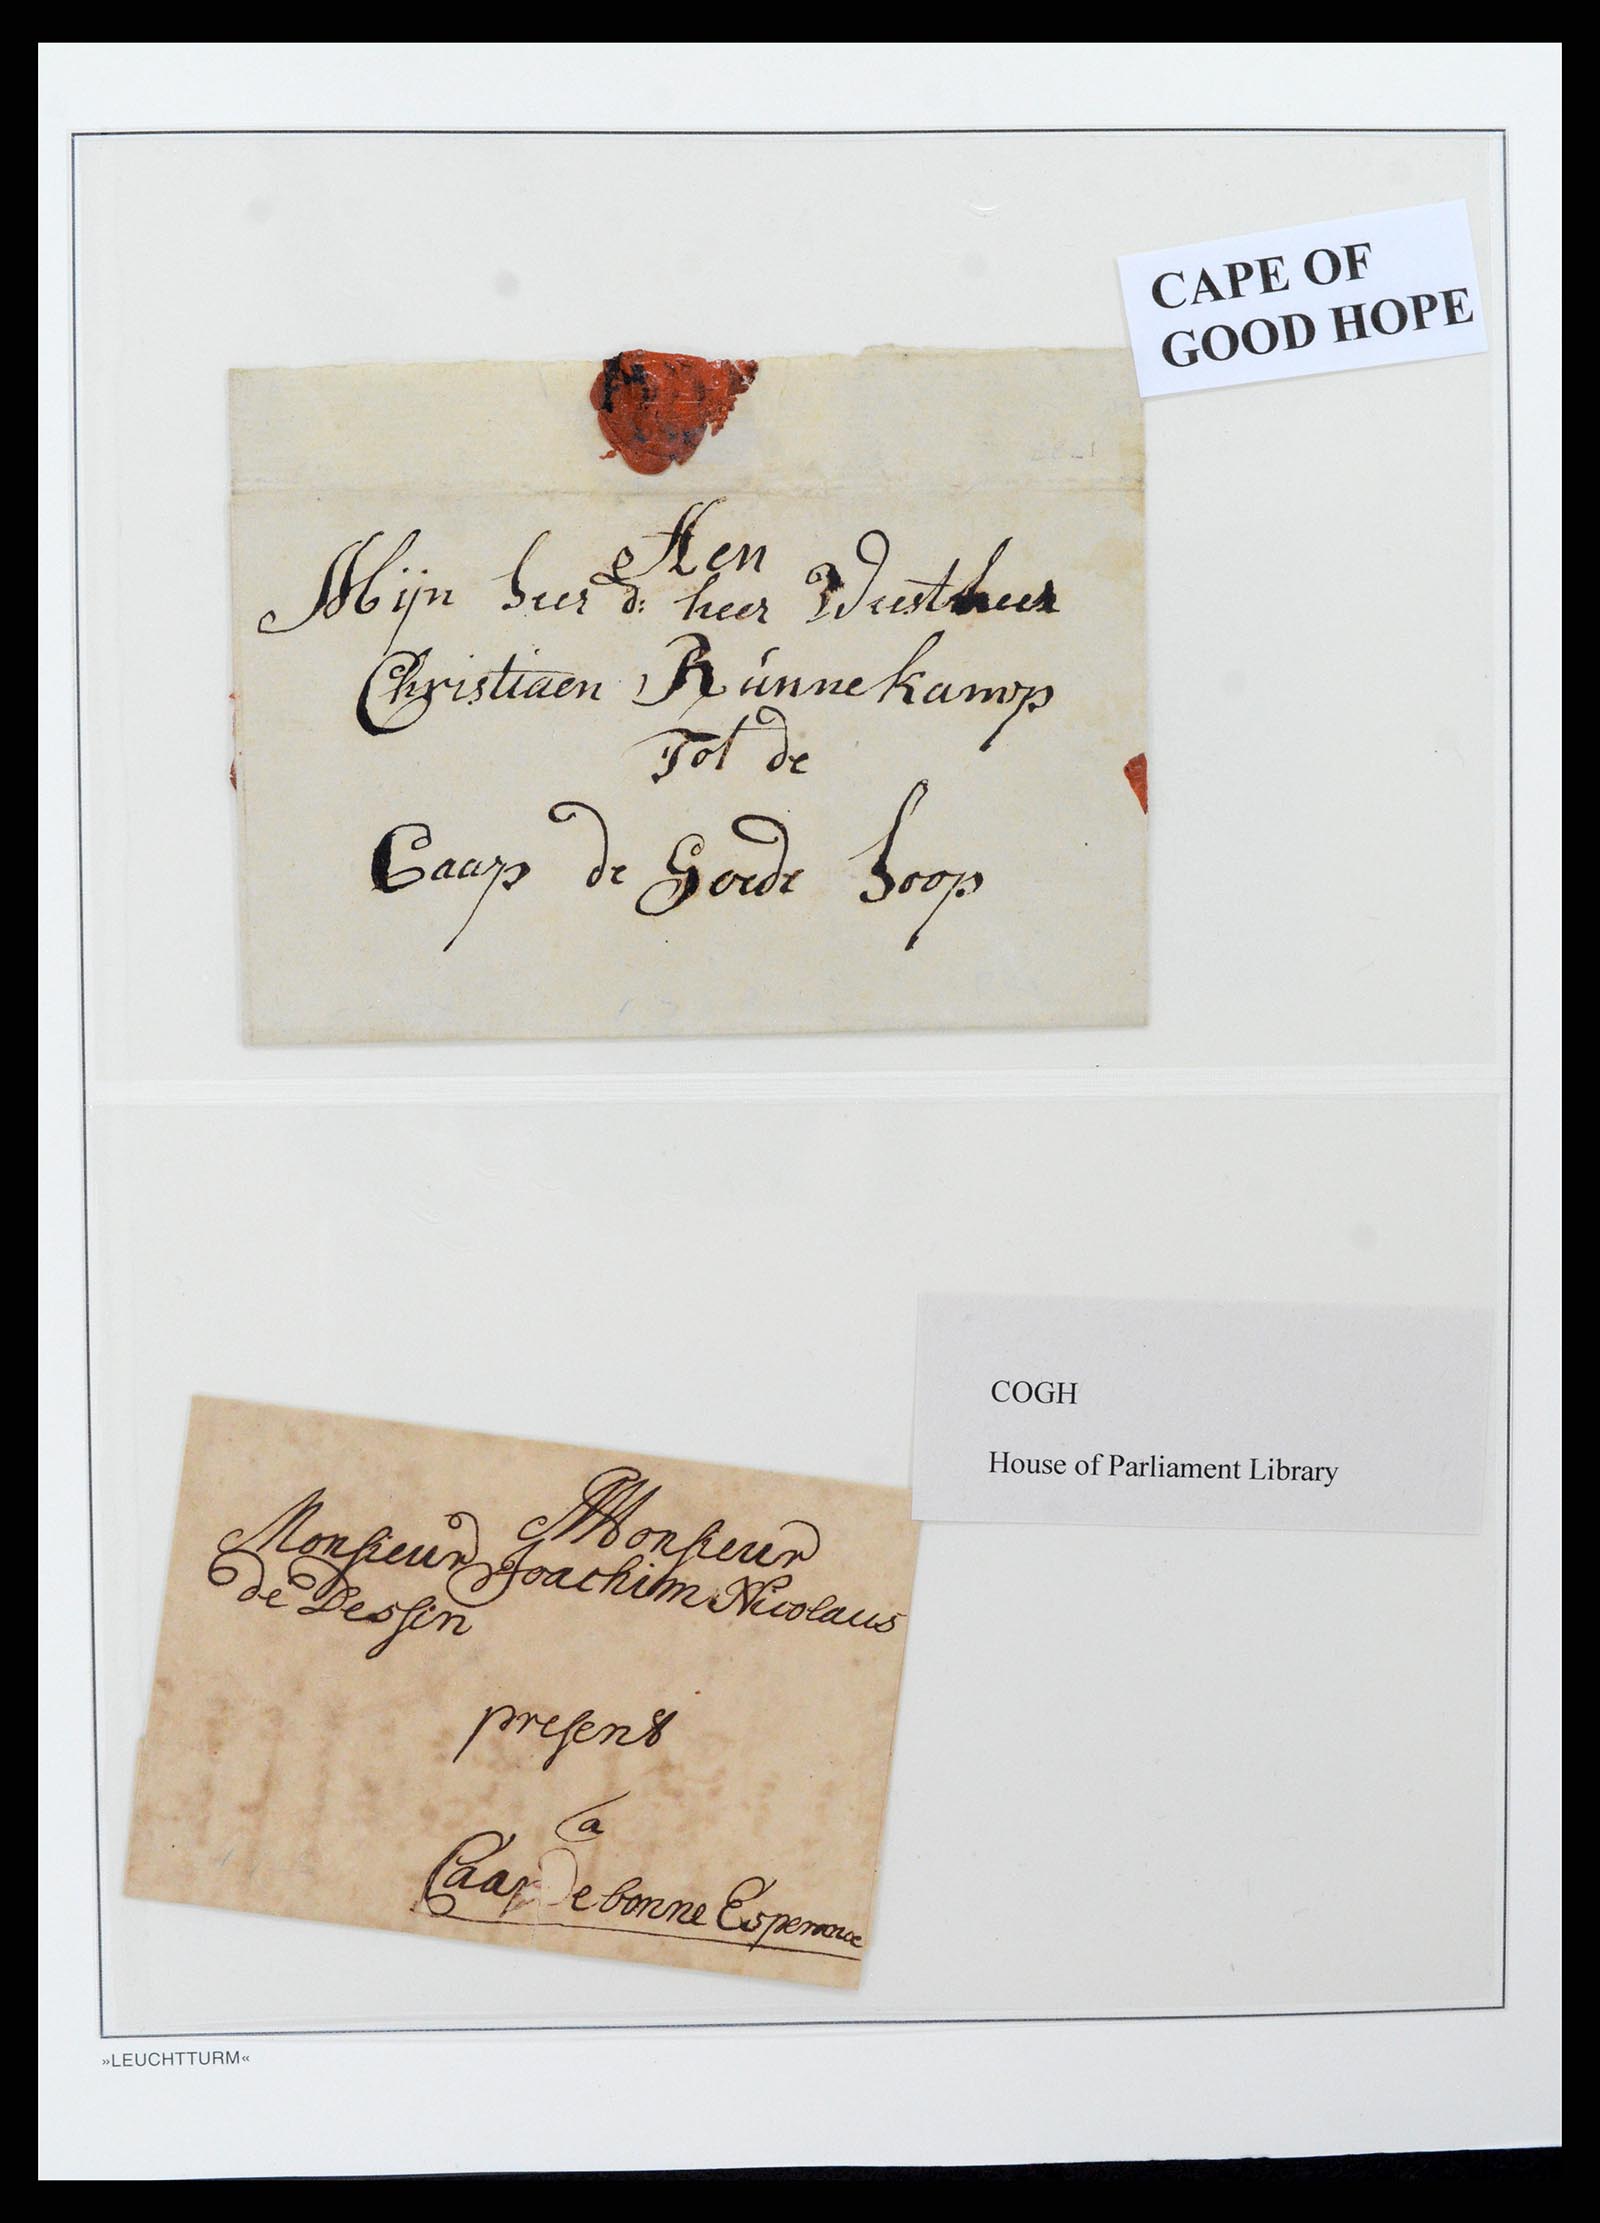 CAPE OF
GOOD HOPE
Aen
Mijn heer d: heer
Christiaen Runnekamp
Tot de
Caap de Goede hoop
COGH
House of Parliament Library
Monsieur
Monsieur Joachim Nicolaus
de Dessin
present
a
Caap De bonne Esperance
»LEUCHTTURM«